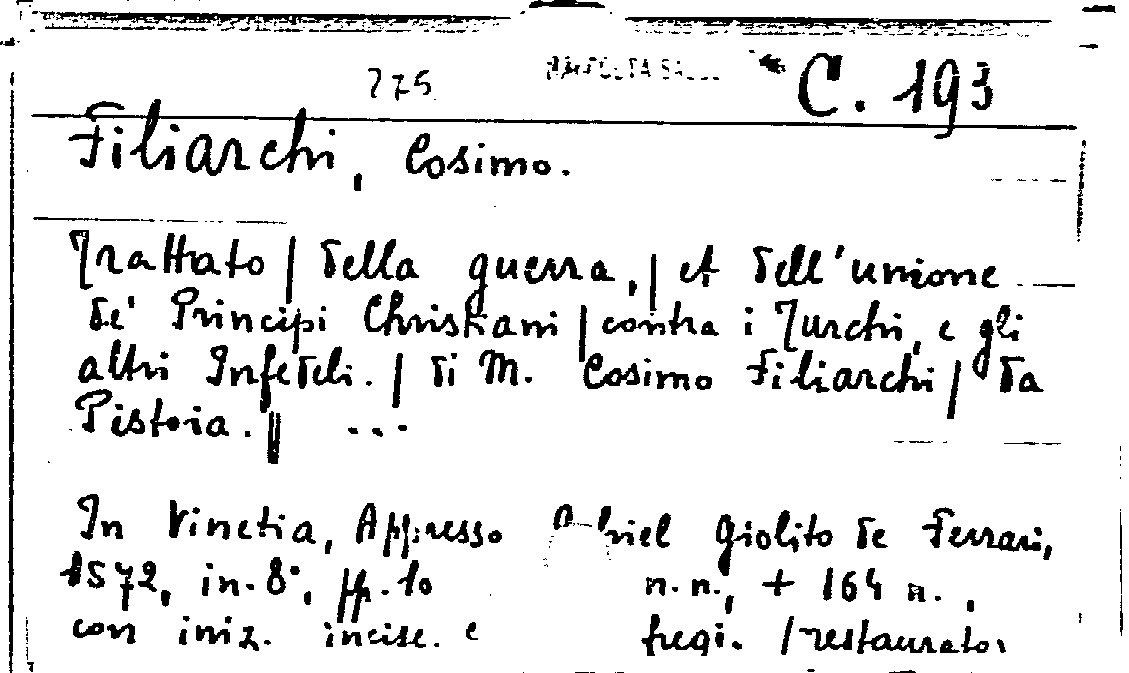 275 C. 193
Filiarchi, Cosimo.
Trattato | della guerra, | et dell'unione
de' Principi Christiani | contra i Turchi, e gli
altri Infedeli. | di M. Cosimo Filiarchi | da
Pistoia. || ...
In Vinetia, Appresso Gabriel Giolito de Ferrari,
1572, in-8°, pp. 10 n.n., + 164 n. ,
con iniz. incise. e fregi. /restaurato/